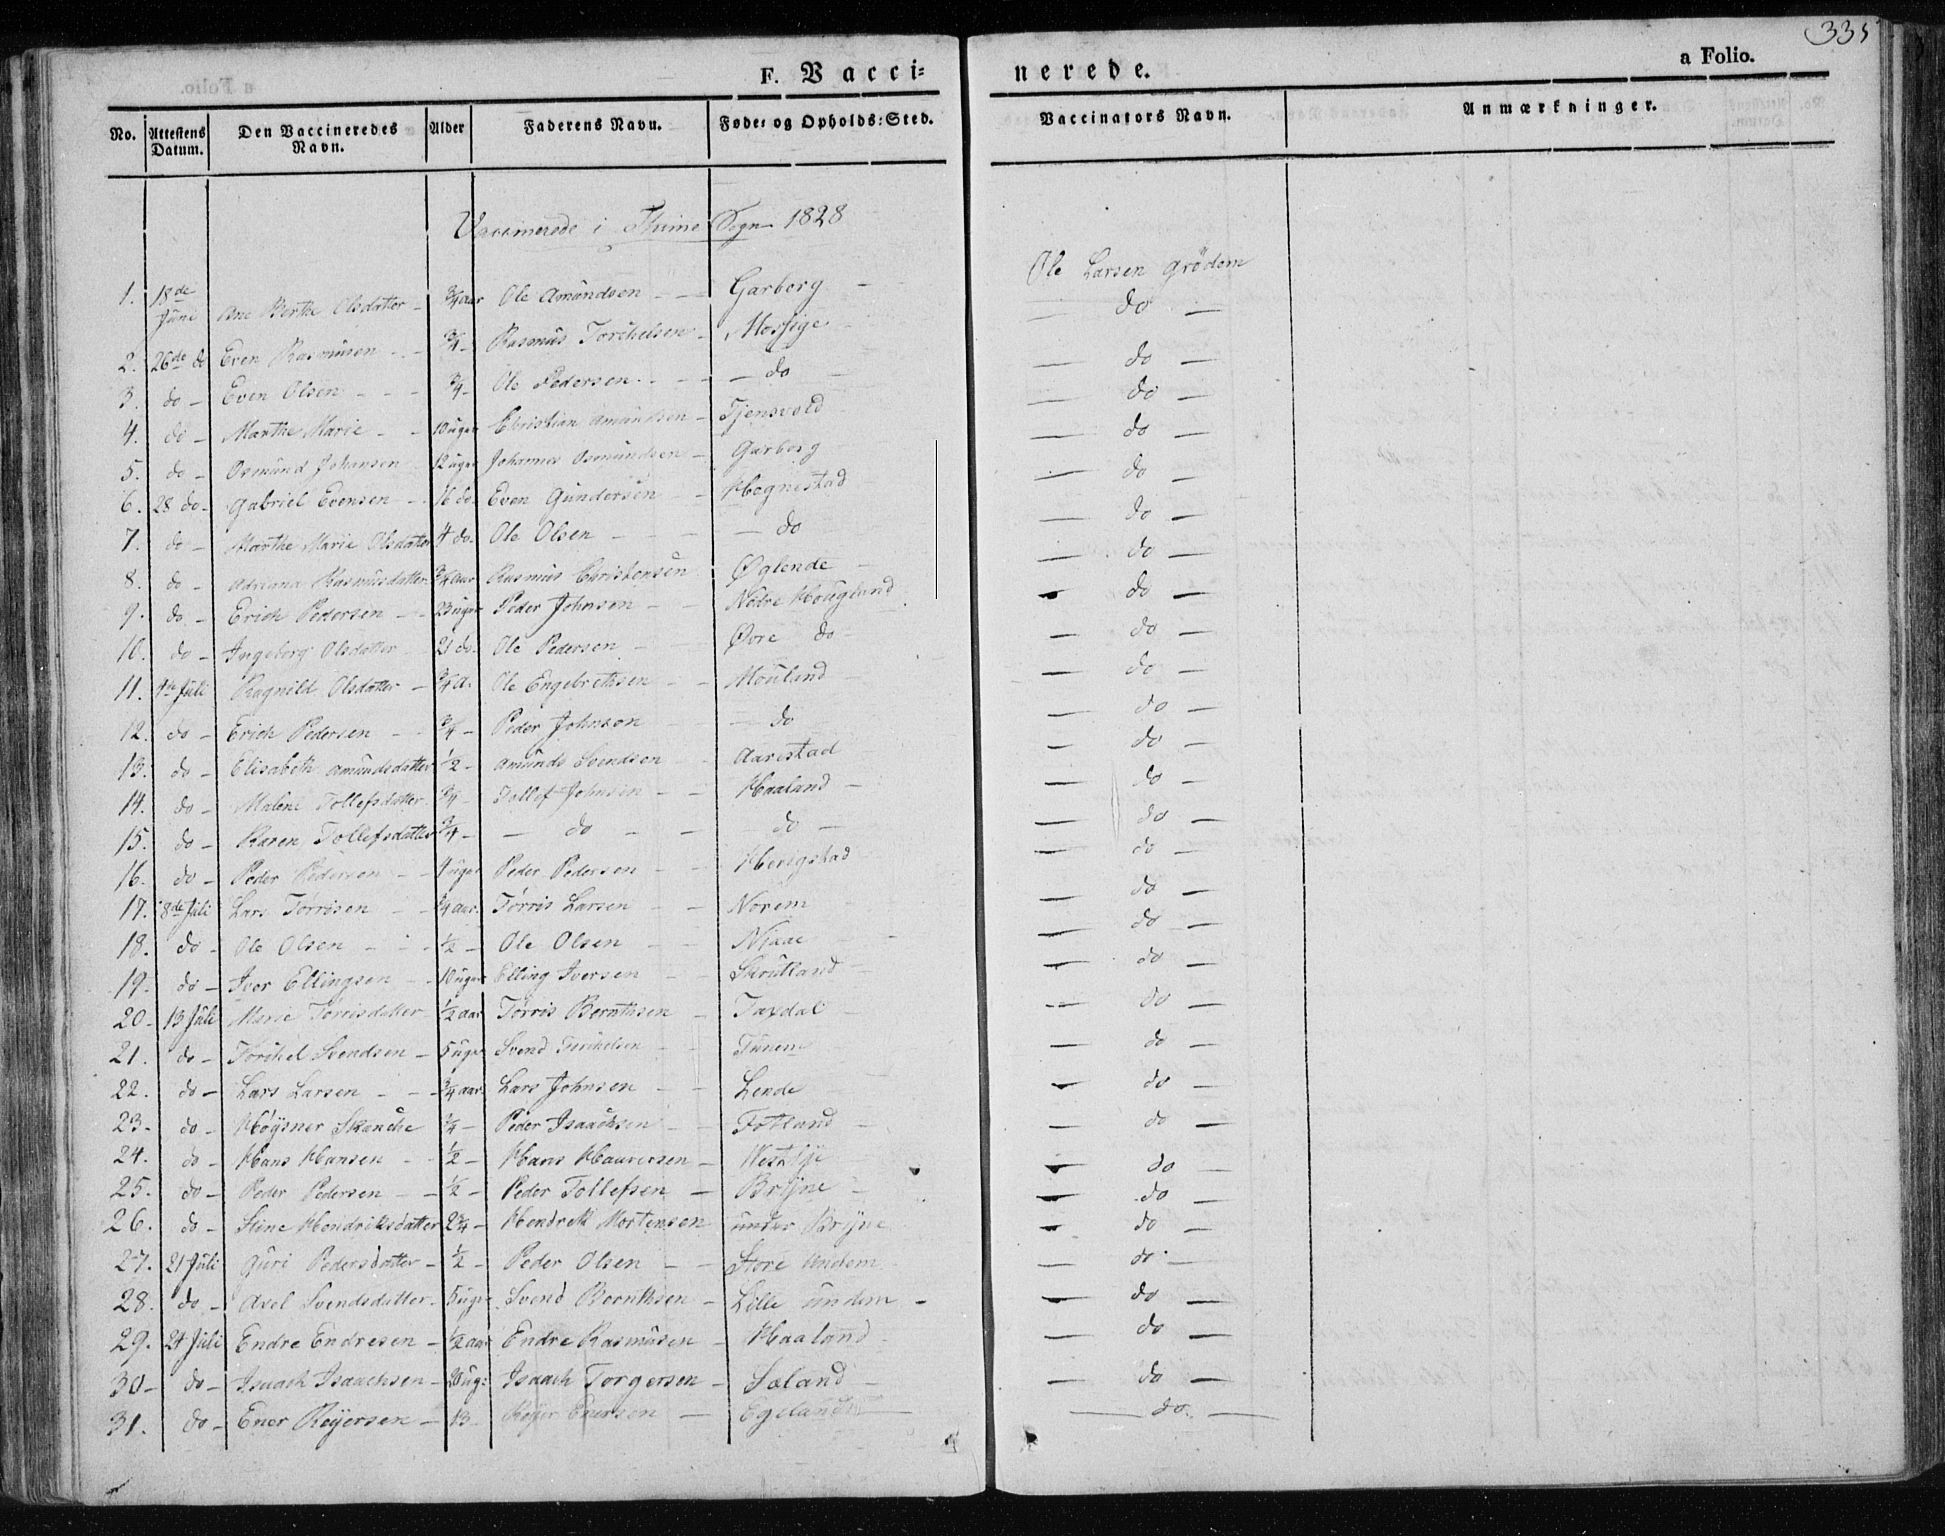 335
F. Vacci= nerede.
a Folio.
No. Attestens Datum. Den Vaccineredes Navn. Alder Faderens Navn. Føde= og Opholds=Sted. Vaccinators Navn. Anmærkninger.
Vaccinerede i Thime Sogn 1828
1. 18de Juni Ane Berthe Olsdatter - 3/4 aar Ole Amundsen - - Garborg - Ole Larsen Grödem
2. 26de do Even Rasmusen - - 3/4 - Rasmus Torchelsen - Mossige - do -
3. do - Even Olsen - - - 3/4 - Ole Pedersen - - - do - do -
4. do - Marthe Marie - - 10 uger Christian Amundsen - Tjensvold - do -
5. do - Osmund Johansen 12 uger Johannes Osmundsen - Garborg - do -
6. 28 do - Gabriel Evensen - 16 do - Even Gundersen - - Hognestad - do -
7. do - Marthe Marie Olsdatter 4 do. Ole Olsen - - - do - do -
8. do - Adriana Rasmusdatter 3/4 aar Rasmus Christensen Øglende - do -
9. do - Erich Pedersen - - 23 uger Peder Johnsen - - Nedre Hougland - do -
10. do - Ingeborg Olsdatter - 21 do. Ole Pedersen - Øvre do - - do -
11. 4de Juli Ragnild Olsdatter - 3/4 a. Ole Engebrethsen - - Mouland - do -
12. do - Erich Pedersen - - 3/4 - Peder Johnson - do - do -
13. do - Elisabeth Amundsdatter 1/2 - Amund Svendsen - Aarestad - do -
14. do - Malene Tollefsdatter 3/4 - Tollef Johnsen - - Haaland - - do -
15. do - Karen Tollefsdatter 3/4 - - do - - do - - do -
16. do - Peder Pedersen - - 4 uger Peder Pedersen - - Herigstad - do -
17. 8de Juli Lars Torrisen - - 3/4 aar. Tørris Larsen - - Norem - do -
18. do - Ole Olsen - - - 1/2 - Ole Olsen - - Njaae - - do -
19. do - Iver Ellingsen - 10 uger Elling Iversen - - Skrutland - do -
20 - 13 Juli Marie Torrisdatter 1/2 aar Tørris Bernthsen - Taxdal - - do -
21. do - Torchel Svendsen - 5 uger Svend Torchelsen - - Tunem - do -
22. do - Lars Larsen - - - 3/4 aar. Lars Johnsen - - Lende - do -
23. do - Høysner Skanche 1/4 - Peder Isaachsen - - Fotland - - do -
24. do - Hans Hansen - - 1/2 - Hans Hauversen - Westlye - do -
25. do - Peder Pedersen - - 1/2 - Peder Tollefsen - Bryne - - do -
26. do - Stine Hendriksdatter 2 3/4 - Hendrik Mortensen under Bryne - do -
27. 21 Juli Guri Pedersdatter - 1/2 - Peder Olsen - - Store Undem - do -
28. do - Axel Svendsdatter - 5 uger Svend Bernthsen - Lille undem - - do -
29. 24 Juli Endre Endresen - 1/2 aar Endre Rasmusen - Haaland - - do -
30 - do - Isaach Isaachsen - 20 ug: Isaach Torgersen - Sæland - - do -
31. do - Ener Reyersen - 13 - Reyer Enersen - Egeland - do. -